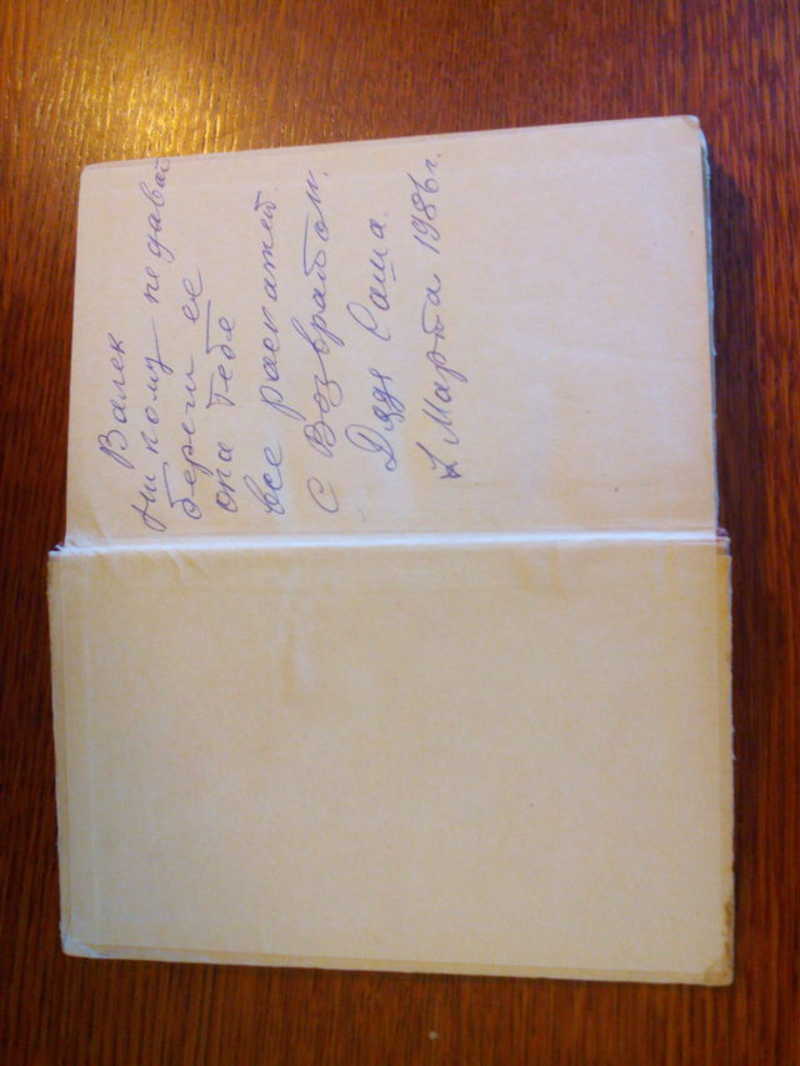 Валек
Ни кому не давай
береги ее
она Тебя
все раскажет.
С Возвратом.
Дядя Саша.
1 Марта 1986 г.